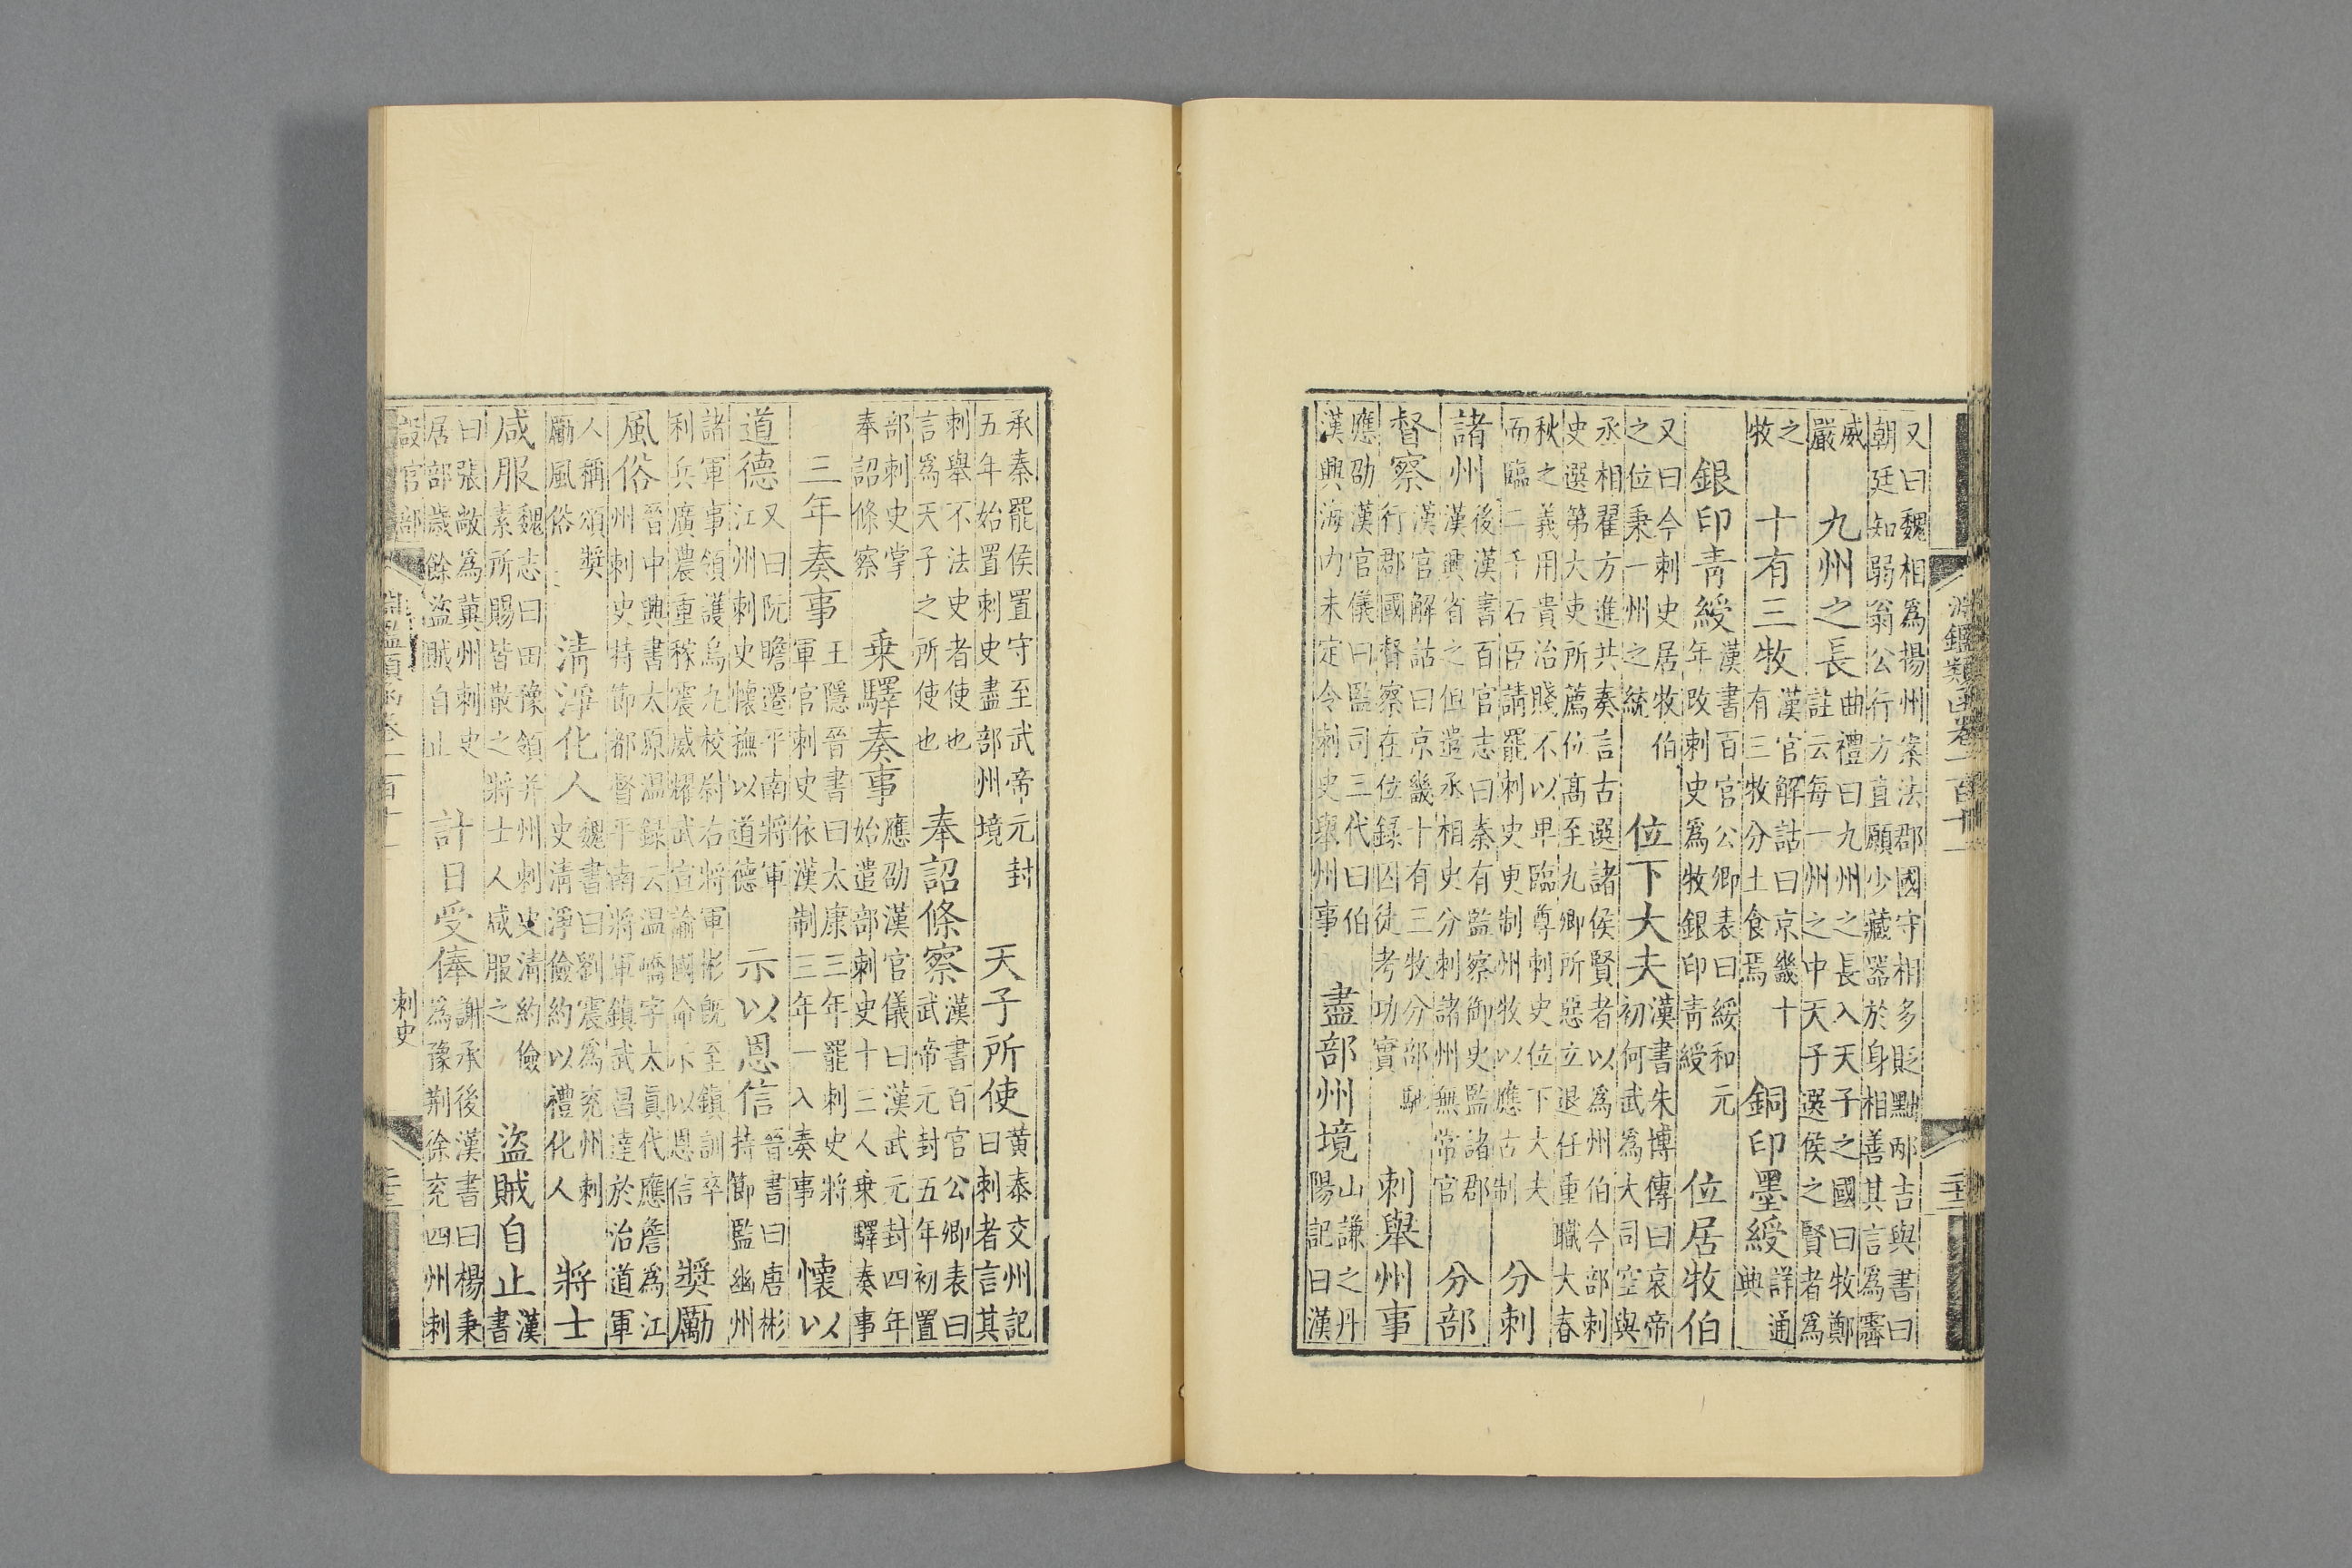 淵鑑類函卷一百十一
又曰魏相為揚州案法郡國守相多貶黜邴吉與書曰
朝廷知弱翁公行方直願少藏器於身相善其言為霽
威嚴 九州之長 曲禮曰九州之長入天子之國曰牧鄭註云每一州之中天子選侯之賢者為
之牧 十有三牧 漢官解詁曰京畿十有三牧分土食焉 銅印墨綬 詳通典
銀印青綬 漢書百官公卿表曰綏和元年改刺史為牧銀印青綬 位居牧伯
又曰今刺史居牧伯之位秉一州之統 位下大夫 漢書朱博傳曰哀帝初何武為大司空與
丞相翟方進共奏言古選諸侯賢者以為州伯今部刺
史選第大吏所薦位高至九卿所惡立退任重職大春
秋之義用貴治賤不以卑臨尊刺史位下大夫而臨二千石臣請罷刺史更制州牧以應古制 分刺
諸州 後漢書百官志曰秦有監察御史監諸郡漢興省之但遣丞相史分刺諸州無常官 分部
督察 漢官解詁曰京畿十有三牧分部馳行郡國督察在位錄囚徒考功實 刺舉州事
應劭漢官儀曰監司三代曰伯漢興海內未定令刺史舉州事 盡部州境 山謙之丹陽記曰漢
承秦罷侯置守至武帝元封五年始置刺史盡部州境 天子所使 黃泰交州記曰刺者言其
刺舉不法史者使也言為天子之所使也 奉詔條察 漢書百官公卿表曰武帝元封五年初置
部刺史掌奉詔條察 乘驛奏事 應劭漢官儀曰漢武元封四年始遣部刺史十三人乘驛奏事
三年奏事 王隱晉書曰太康三年罷刺史將軍官刺史依漢制三年一入奏事 懷以
道德 又曰阮瞻遷平南將軍江州刺史懷撫以道德 示以恩信 晉書曰唐彬持節監幽州
諸軍事領護烏丸校尉右將軍彬既至鎮訓卒利兵廣農重稼震威耀武宣諭國命示以恩信 獎勵
風俗 晉中興書太原溫錄云溫嶠字太真代應詹為江州刺史持節都督平南將軍鎮武昌達於治道軍
人稱頌獎勵風俗 清淨化人 魏書曰劉震為兗州刺史清淨儉約以禮化人 將士
咸服 魏志曰田豫領并州刺史清約儉素所賜皆散之將士人咸服之 盜賊自止 漢書
曰張敞為冀州刺史居部歲餘盜賊自止 計日受俸 謝承後漢書曰楊秉為豫荊徐兗四州刺
設官部 淵鑑類函卷一百十一 刺史